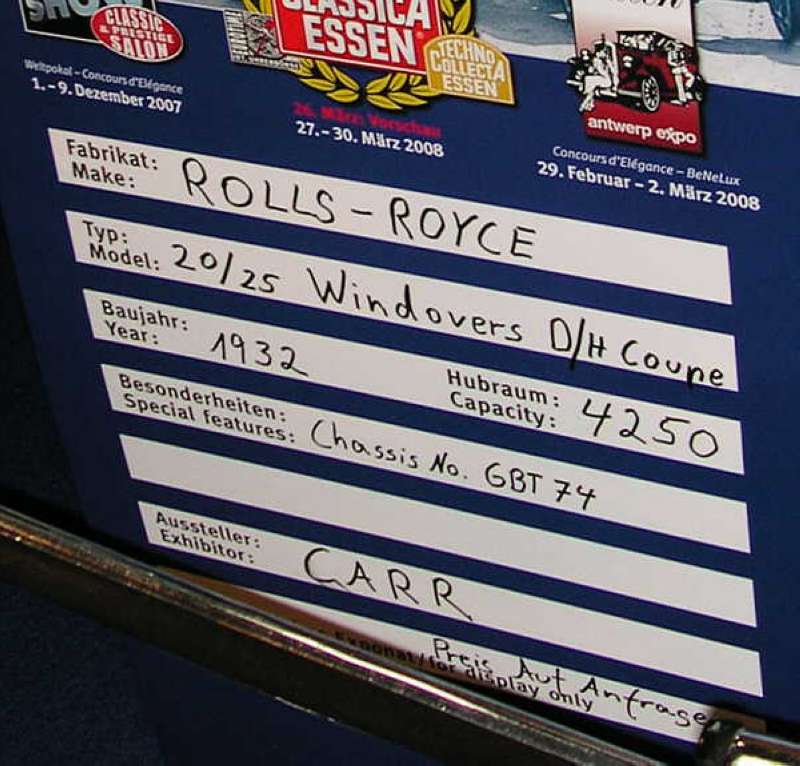 SHO
CLASSIC
& PRESTIGE
SALON
Weltpokal – Concours d'Elégance
1. – 9. Dezember 2007
CLASSICA
ESSEN
TECHNO
COLLECTA
ESSEN
26. März: Vorschau
27. – 30. März 2008
antwerp expo
Concours d'Elégance – BeNeLux
29. Februar – 2. März 2008
Fabrikat:
Make: ROLLS-ROYCE
Typ:
Model: 20/25 Windovers D/H Coupe
Baujahr:
Year: 1932
Hubraum:
Capacity: 4250
Besonderheiten:
Special features: Chassis No. GBT 74
Aussteller:
Exhibitor: CARR
Preis Auf Anfrage
Exponat/for display only